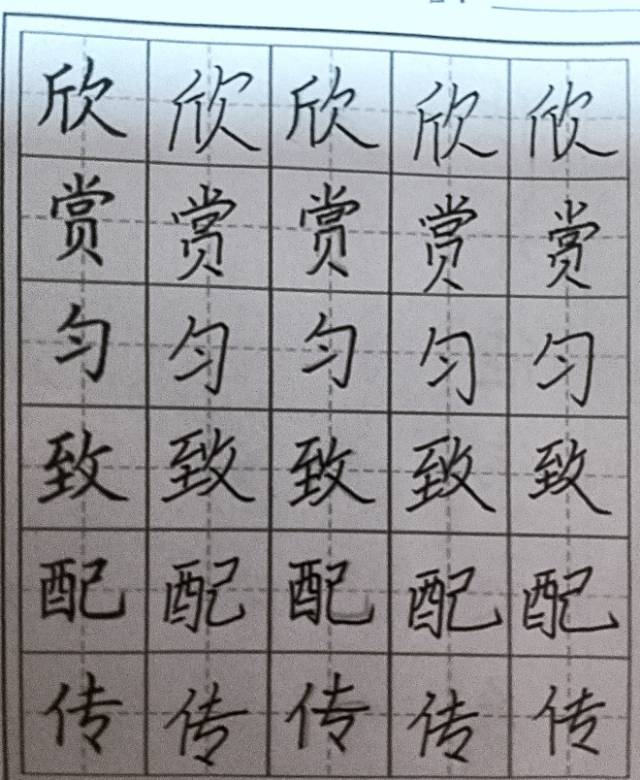 欣欣欣欣欣
赏赏赏赏赏
匀匀匀匀匀
致致致致致
配配配配配
传传传传传